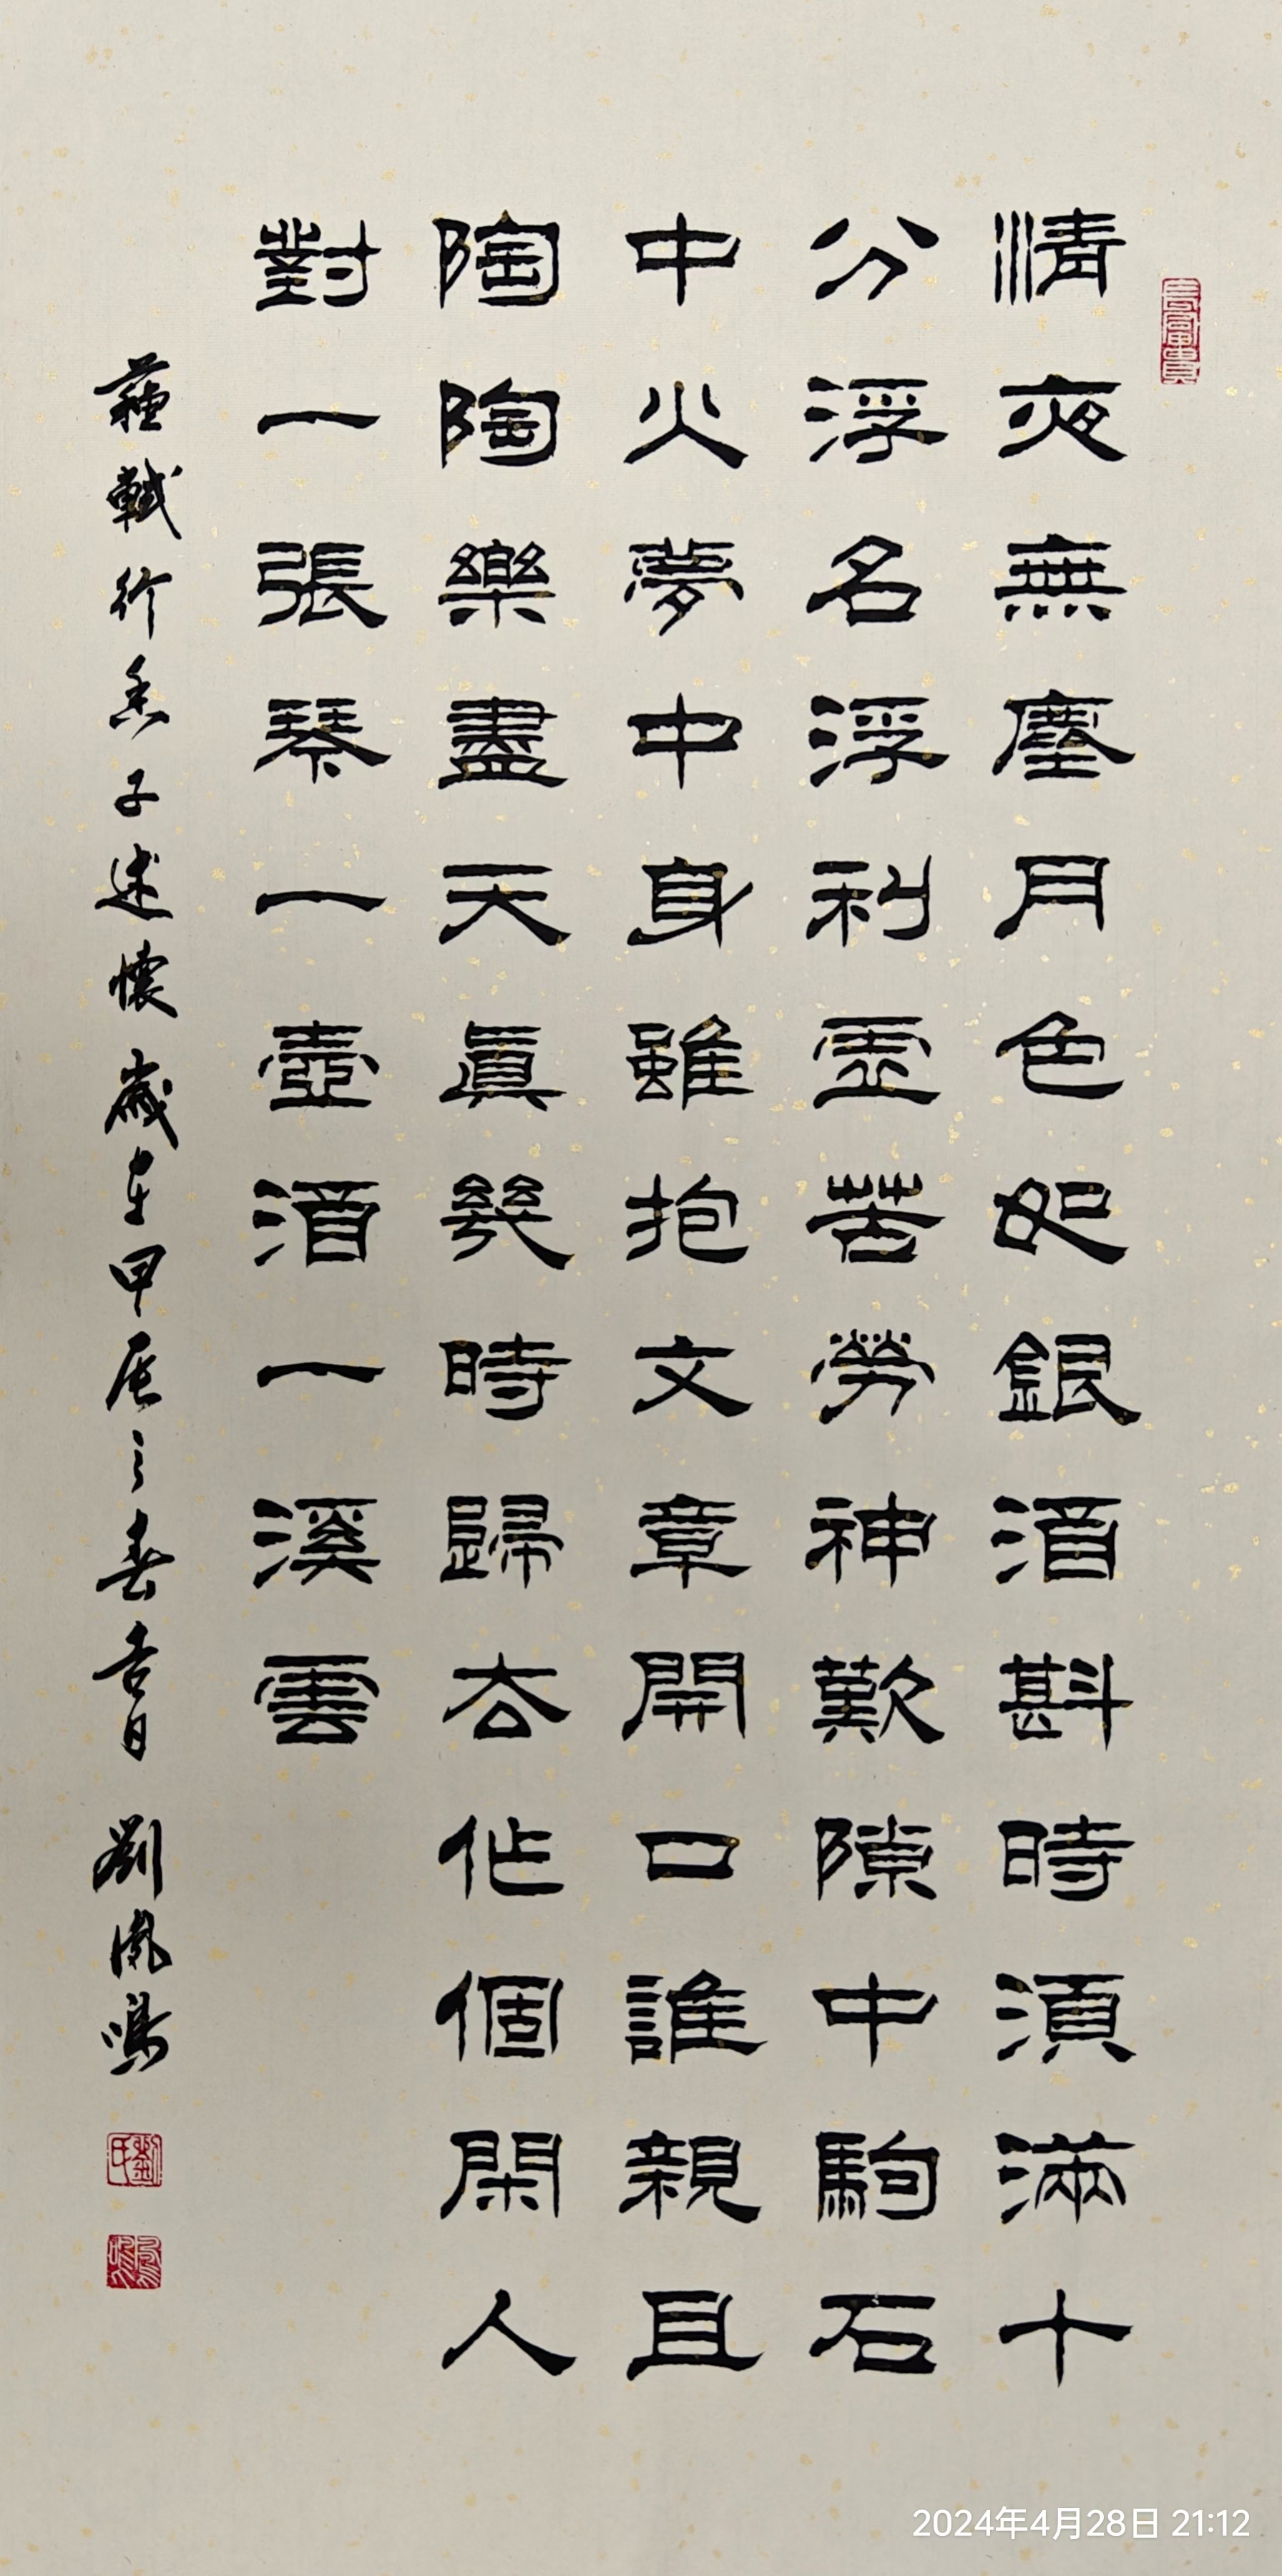 長富貴
清夜無塵月色如銀酒斟時須滿十
分浮名浮利虛苦勞神歎隙中駒石
中火夢中身雖抱文章開口誰親且
陶陶樂盡天眞幾時歸去作個閑人
對一張琴一壺酒一溪雲
蘇軾行香子述懷 歲在甲辰之春吉日 劉鳳鳴
劉氏
鳳鳴
2024年4月28日 21:12